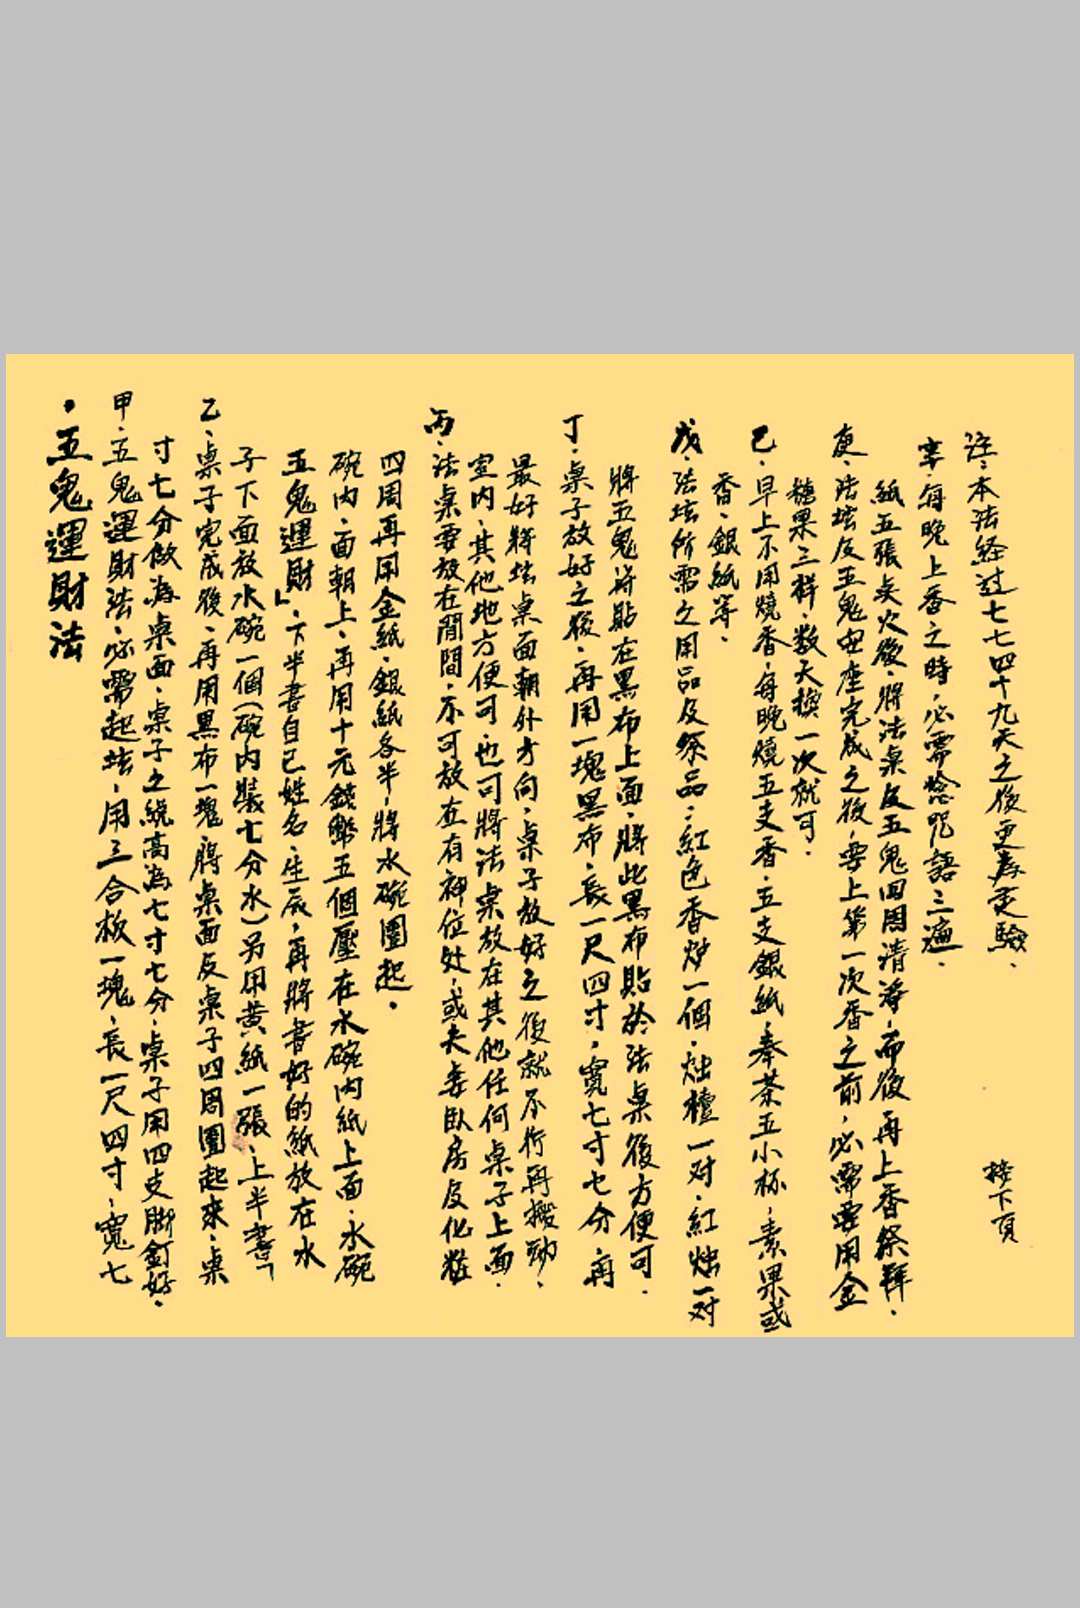 ·五鬼運財法
甲·五鬼運財法·必需起坛·用三合板一塊·長一尺四寸·寬七
寸七分做為桌面·桌子之統高為七寸七分·桌子用四支脚釘好·
乙·桌子完成後·再用黑布一塊·將桌面及桌子四周圍起來·桌
子下面放水碗一個(碗内裝七分水)另用黄紙一張·上半書「
五鬼運財」·下半書自己姓名·生辰·再將書好的紙放在水
碗内·面朝上·再用十元錢幣五個壓在水碗内紙上面·水碗
四周再用金紙·銀紙各半·將水碗圍起·
丙·法桌要放在閒間·不可放在有神位处·或夫妻臥房及化粧
室内·其他地方便可·也可將法桌放在其他任何桌子上面·
最好將坛桌面朝外方向·桌子放好之後就不行再搬動·
丁·桌子放好之後·再用一塊黑布·長一尺四寸·寬七寸七分·再
將五鬼符貼在黑布上面·將此黑布貼於法桌後方便可·
戊·法坛所需之用品及祭品·紅色香炉一個·烛檯一对·紅烛一对
香·銀紙等·
己·早上不用燒香·每晚燒五支香·五支銀紙·奉茶五小杯·素果或
糖果三样·数天換一次就可·
庚·法坛及五鬼安座完成之後·要上第一次香之前·必需要用金
紙五張点火後·將法桌及五鬼四周清淨·而後再上香祭拜·
辛·每晚上香之時·必需唸咒語三遍·
註·本法经过七七四十九天之後更為灵驗·
接下頁